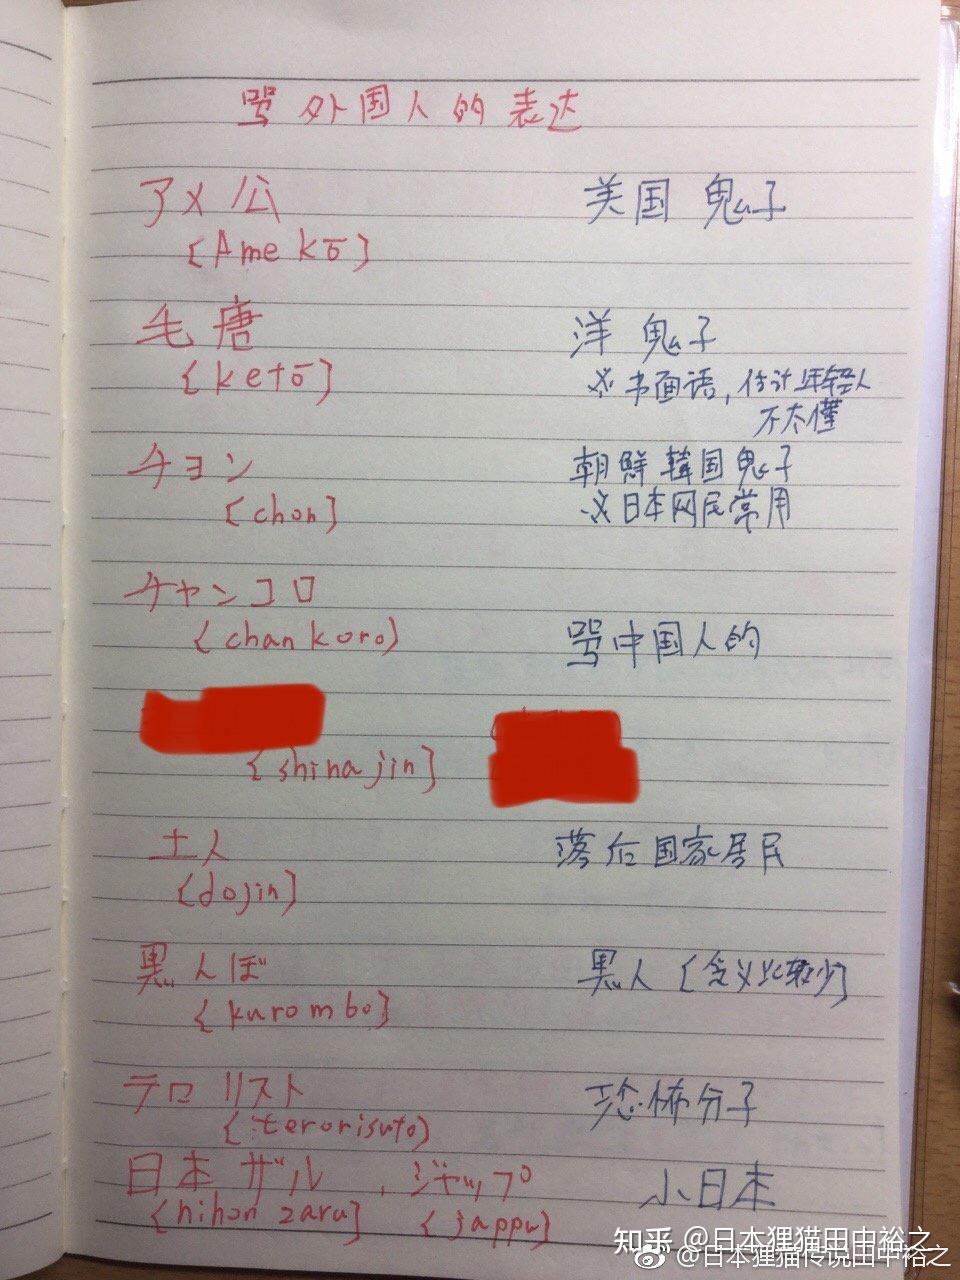 骂外国人的表达
アメ公 美国鬼子
[Ame kō]
毛唐 洋鬼子
[ketō] ※书面语，估计年轻人
不太懂
チョン 朝鮮韓国鬼子
[chon] ※日本网民常用
チャンコロ
[chankoro) 骂中国人的
[shinajin]
土人 落后国家居民
[dojin]
黒んぼ 黑人[含义比较少]
[kurombo]
テロリスト 恐怖分子
[terorisuto)
日本ザル，ジャップ 小日本
[nihon zaru] [jappu]
知乎 @日本狸猫田中裕之
@日本狸猫传说田中裕之